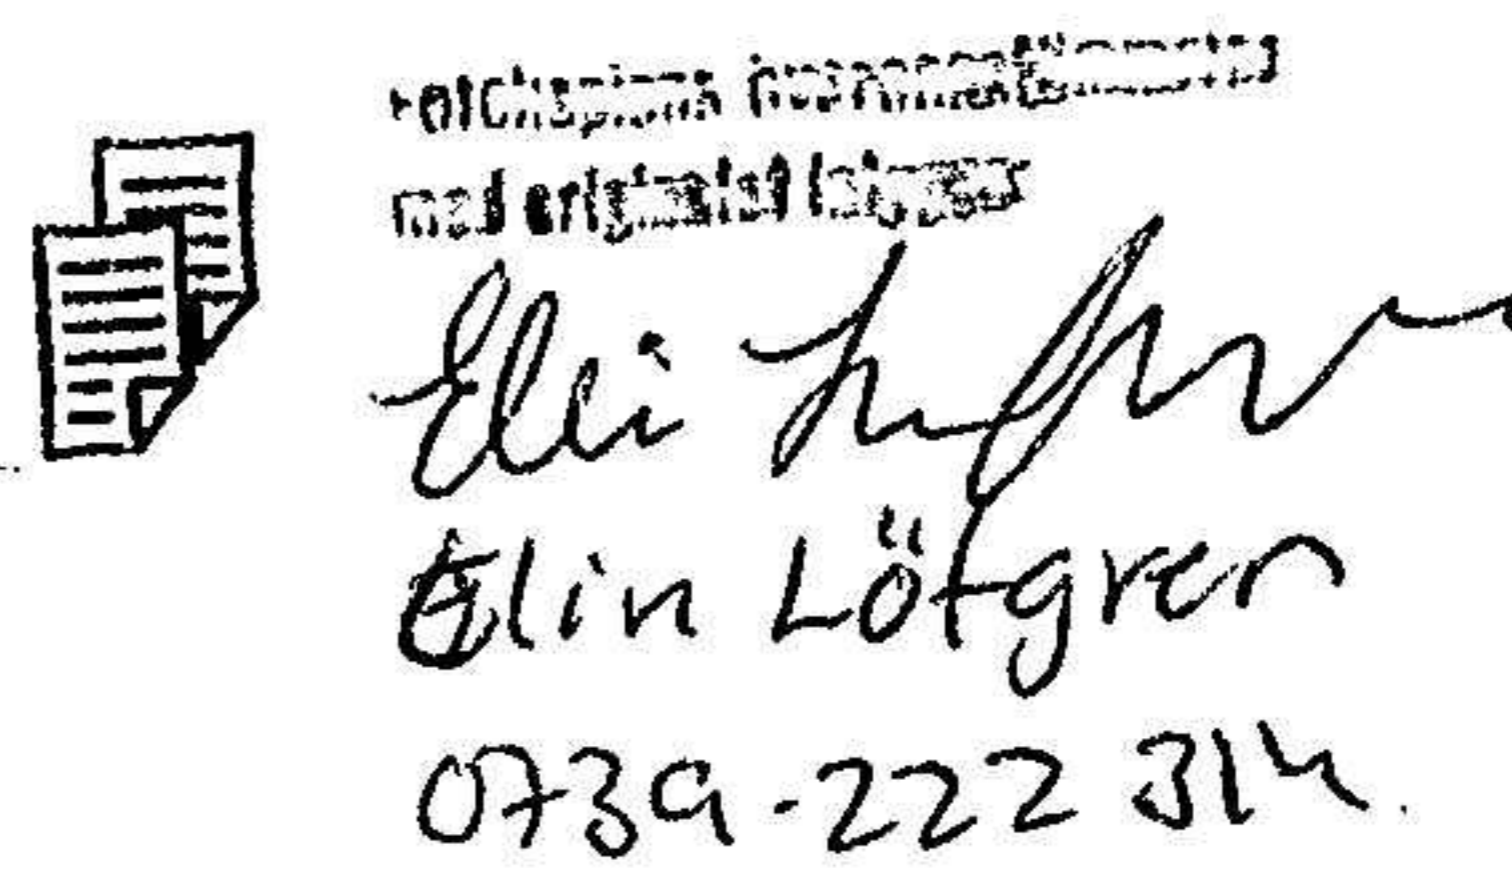 Fotokopians överensstämmelse
med originalet intygas
Elin Löfgren
Elin Löfgren
0739-222 314